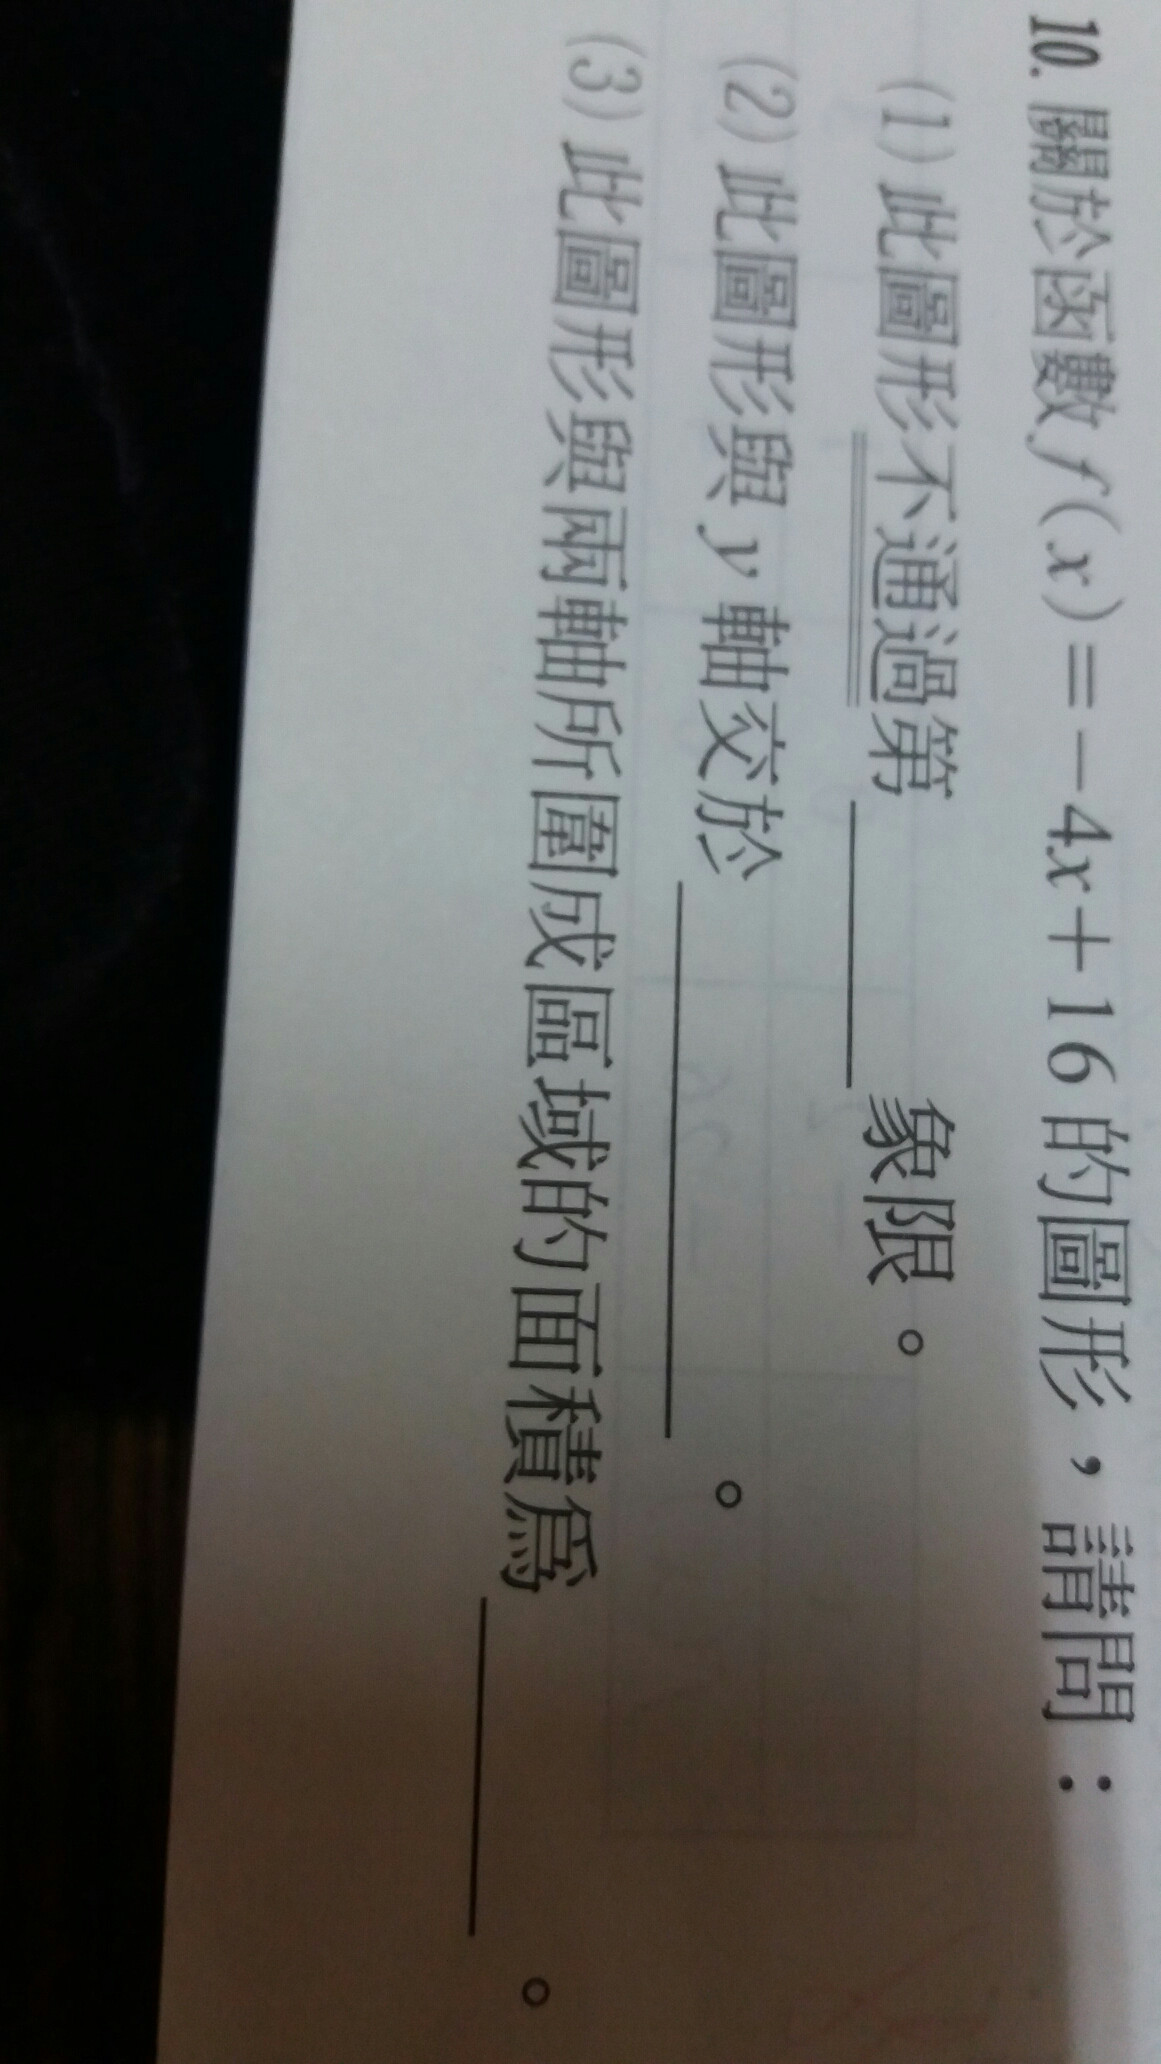 10. 關於函數 f(x)=-4x+16 的圖形，請問：
(1) 此圖形不通過第______象限。
(2) 此圖形與 y 軸交於____________。
(3) 此圖形與兩軸所圍成區域的面積為_______。